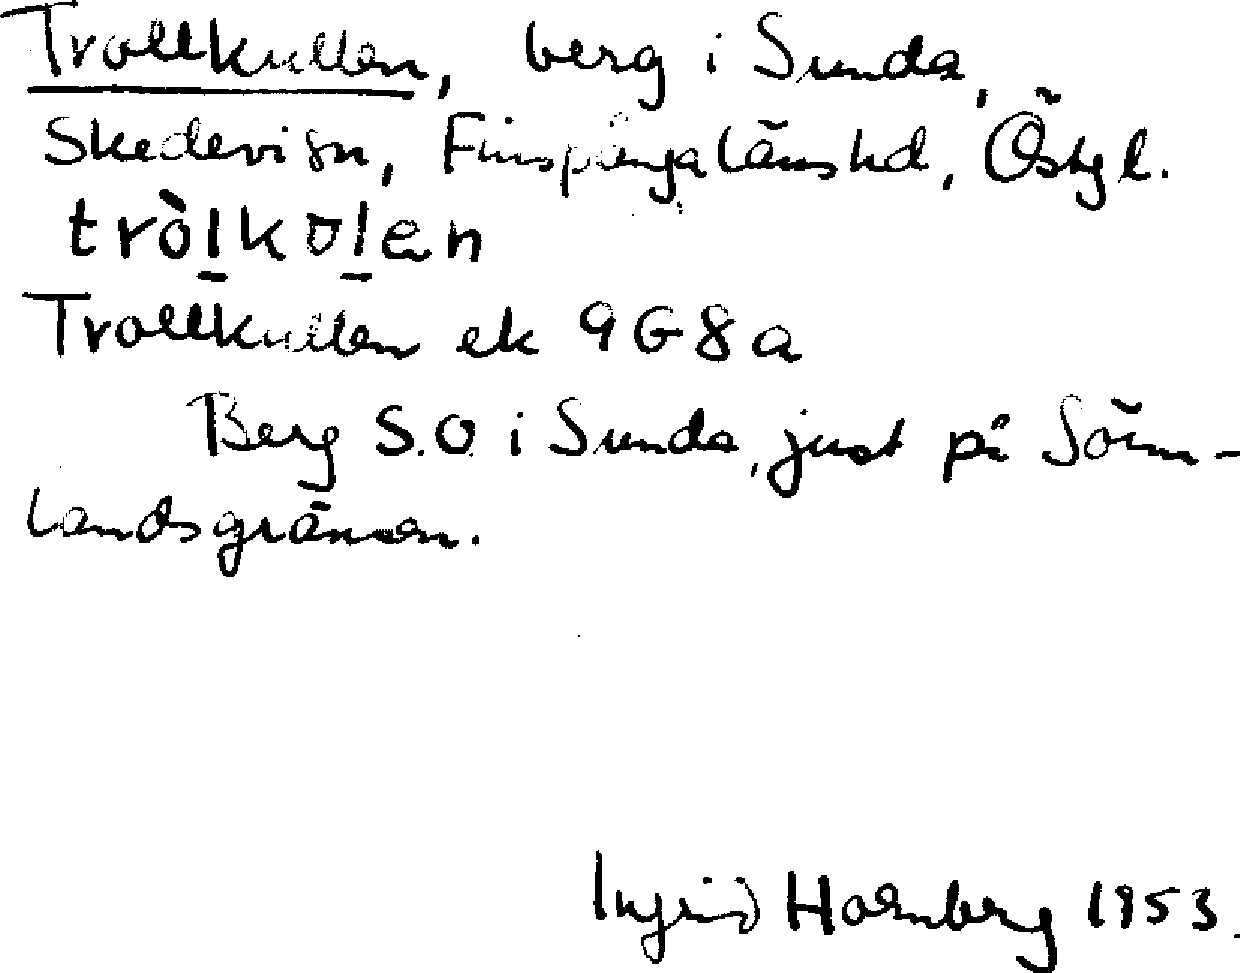 Trollkullen, berg i Sunda,
Skedevi sn, Finspångalänshd, Östgl.
tròlkolen
Trollkullen ek 9G8a
Berg S.O i Sunda, just på Sörm-
landsgränsen.
Ingrid Holmberg 1953.